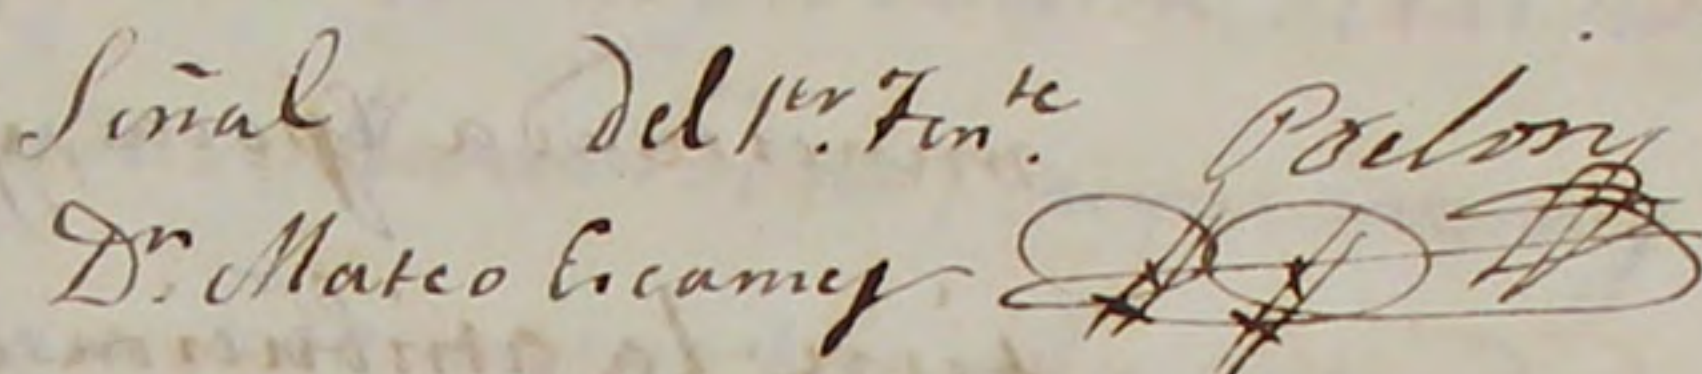 Señal del 1er. Tente.
Dn. Mateo Escamez